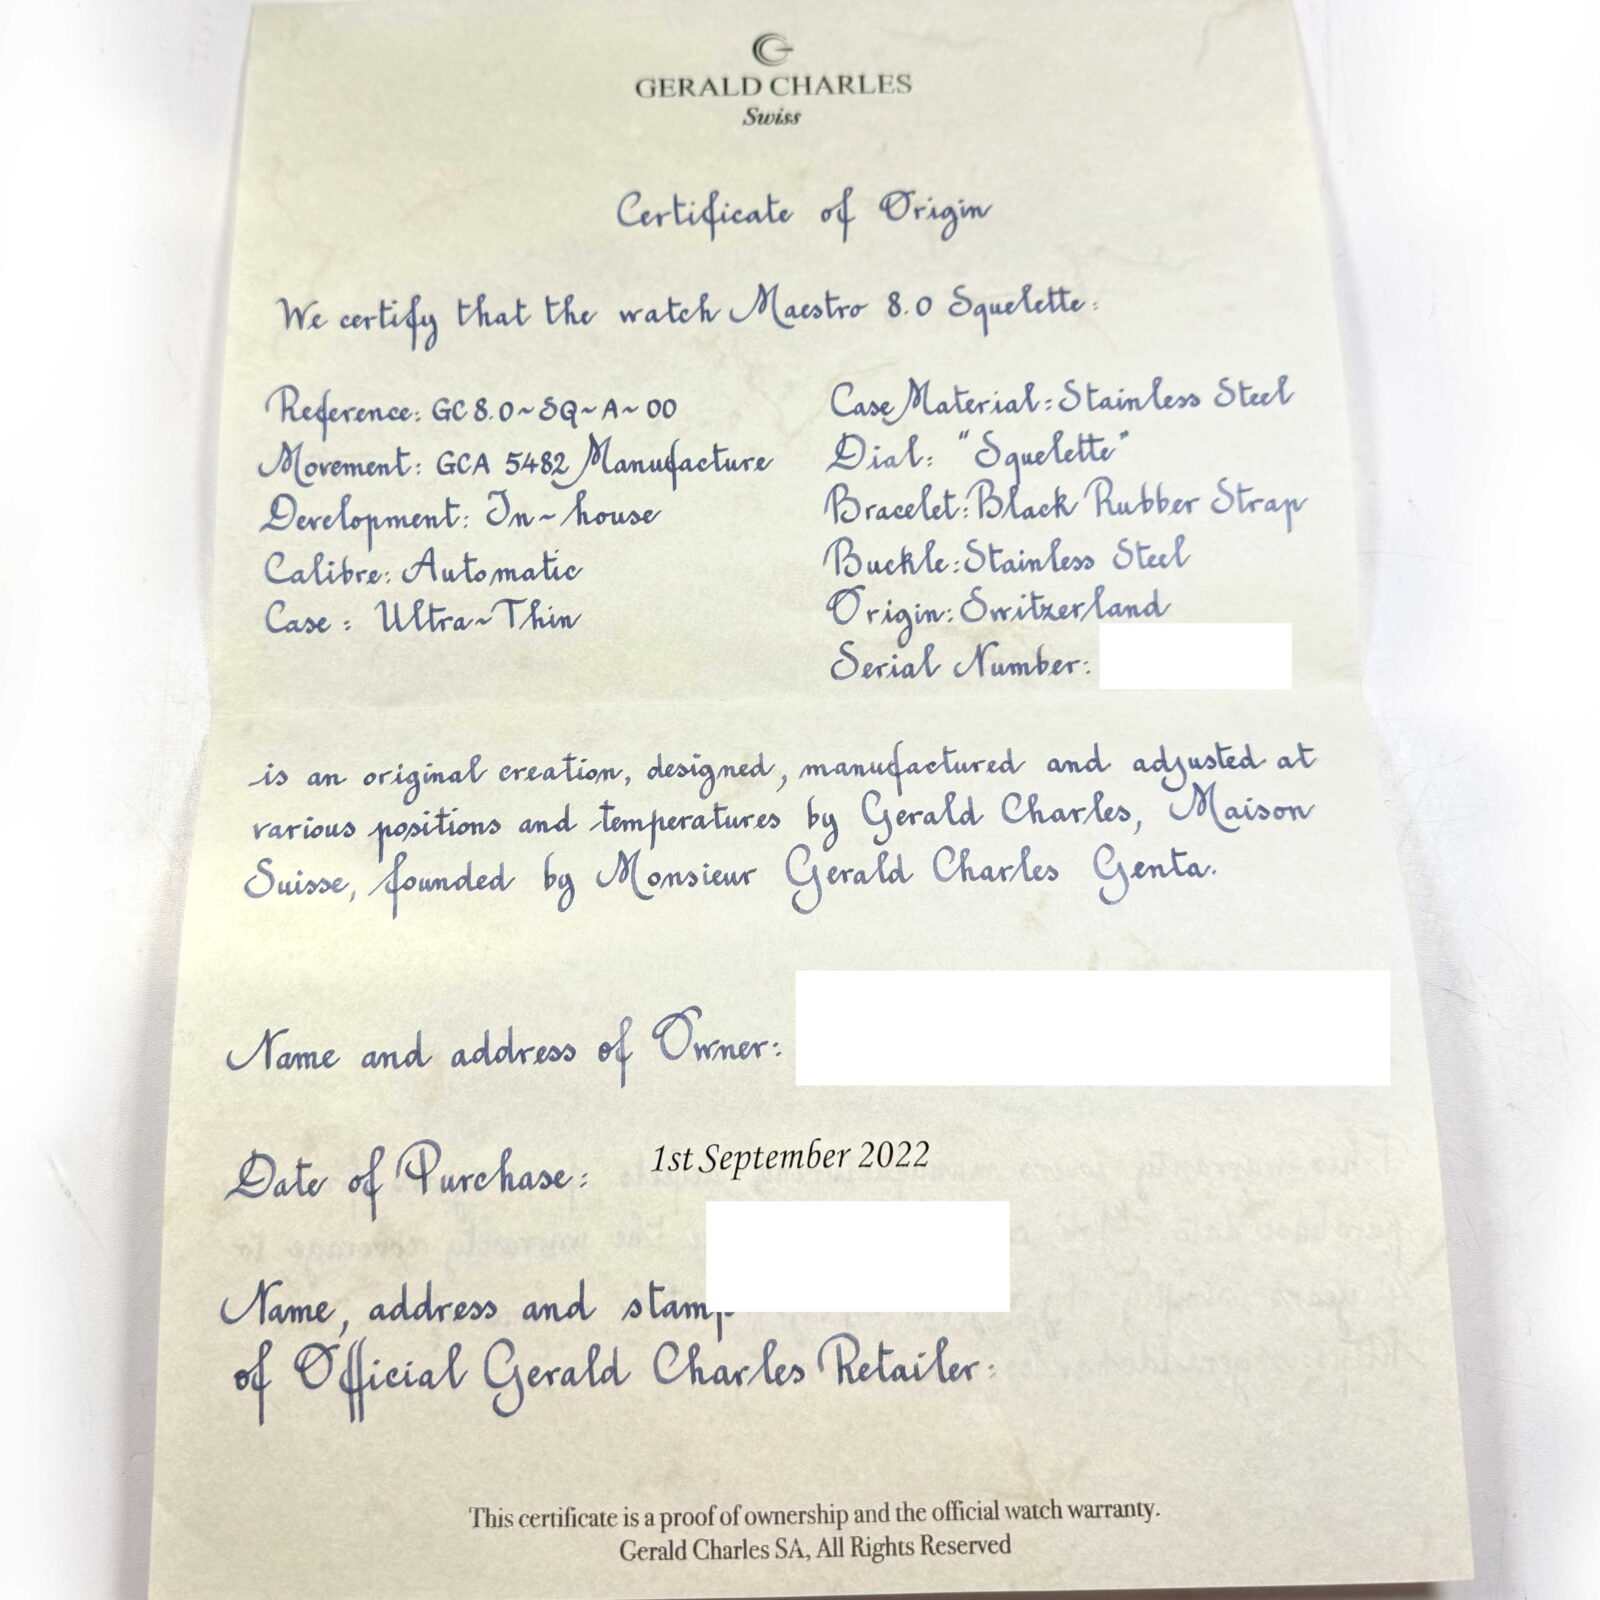 GERALD CHARLES
Swiss
Certificate of Origin
We certify that the watch Maestro 8.0 Squelette:
Reference: GC8.0~SQ~A~00
Movement: GCA 5482 Manufacture
Development: In~house
Calibre: Automatic
Case: Ultra~Thin
Case Material: Stainless Steel
Dial: "Squelette"
Bracelet: Black Rubber Strap
Buckle: Stainless Steel
Origin: Switzerland
Serial Number:
is an original creation, designed, manufactured and adjusted at
various positions and temperatures by Gerald Charles, Maison
Suisse, founded by Monsieur Gerald Charles Genta.
Name and address of Owner:
Date of Purchase: 1st September 2022
Name, address and stamp
of Official Gerald Charles Retailer:
This certificate is a proof of ownership and the official watch warranty.
Gerald Charles SA, All Rights Reserved